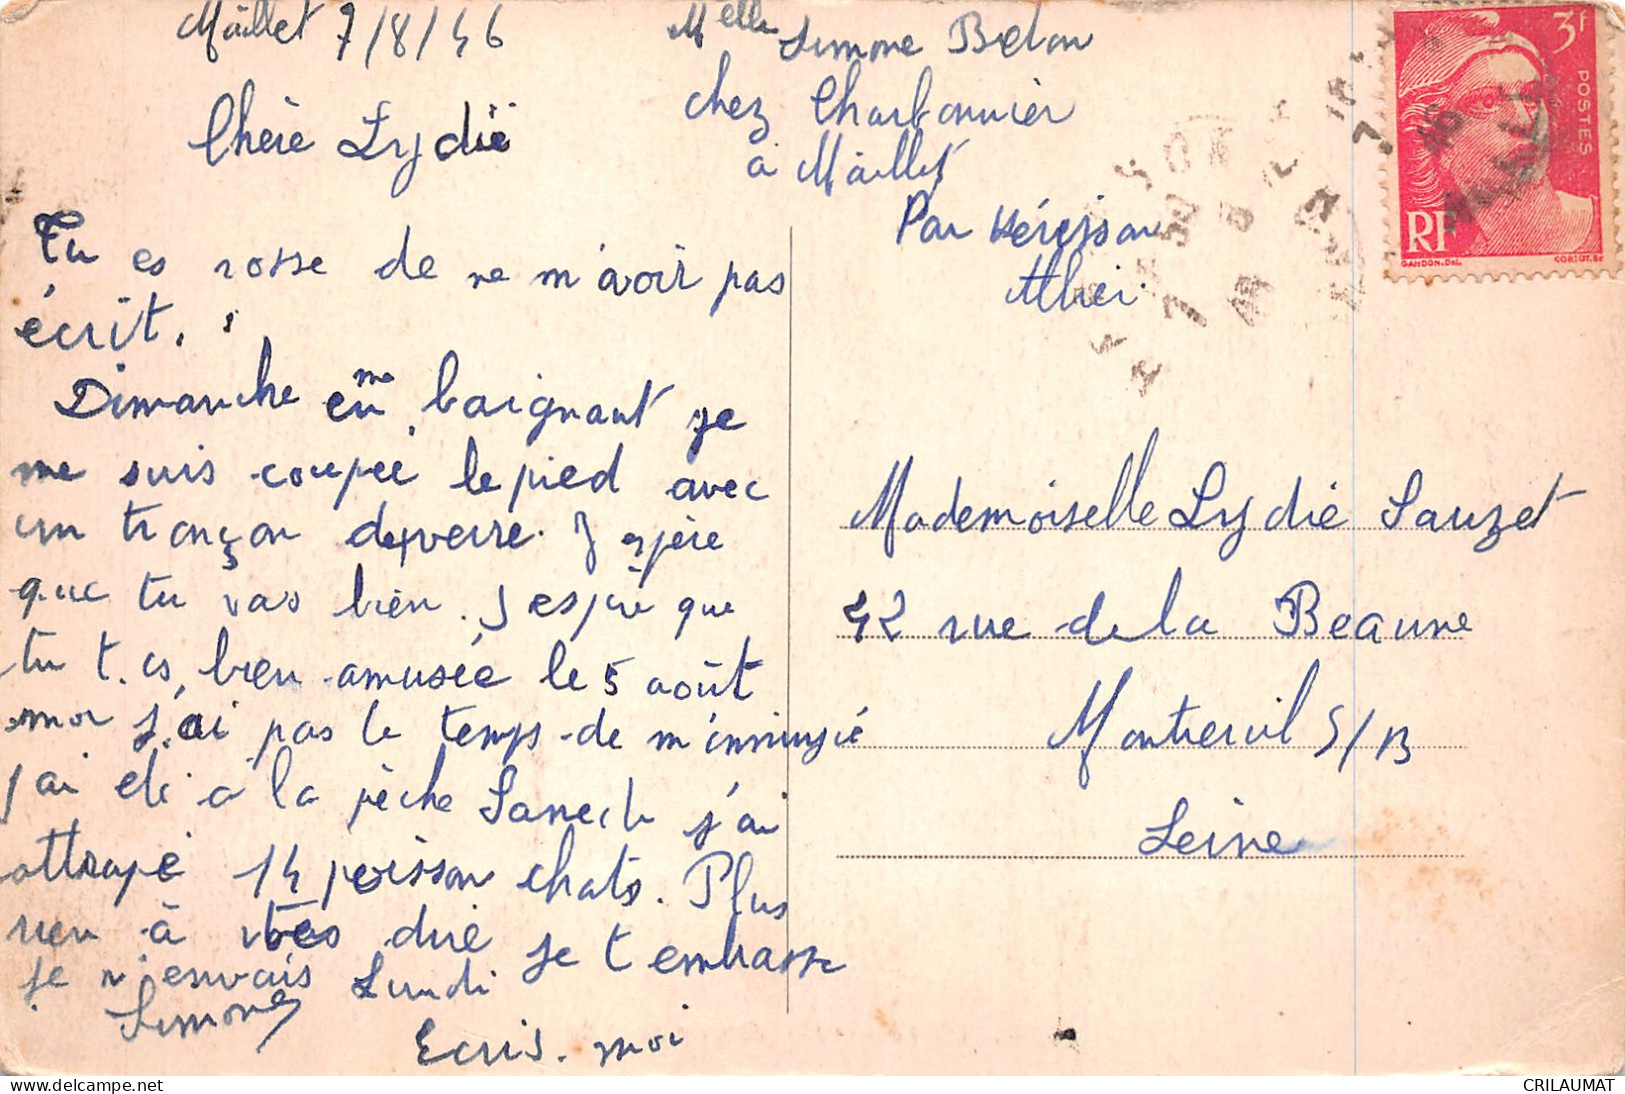 Maillet 7/8/46
Chère Lydie
Tu es rosse de ne m'avoir pas
écrit.
Dimanche en me baignant je
me suis coupée le pied avec
un tronçon de verre. J espère
que tu vas bien. J espère que
tu t. es bien amusée le 5 août
moi j.ai pas le temps de m'ennuyié
j'ai été à la pêche Samedi j'ai
attrapé 14 poisson chats. Plus
rien à dire je t embrasse
je m'envais Lundi
Simone
Ecris. moi
Melle Simone Belon
chez Charbonnier
à Maillet
Par Hérisson
Allier.
3f
POSTES
RF
GANDON.Del.
CORTOT.Sc
Mademoiselle Lydie Sauzet
42 rue de la Beaune
Montreuil S/B
Seine
CRILAUMAT